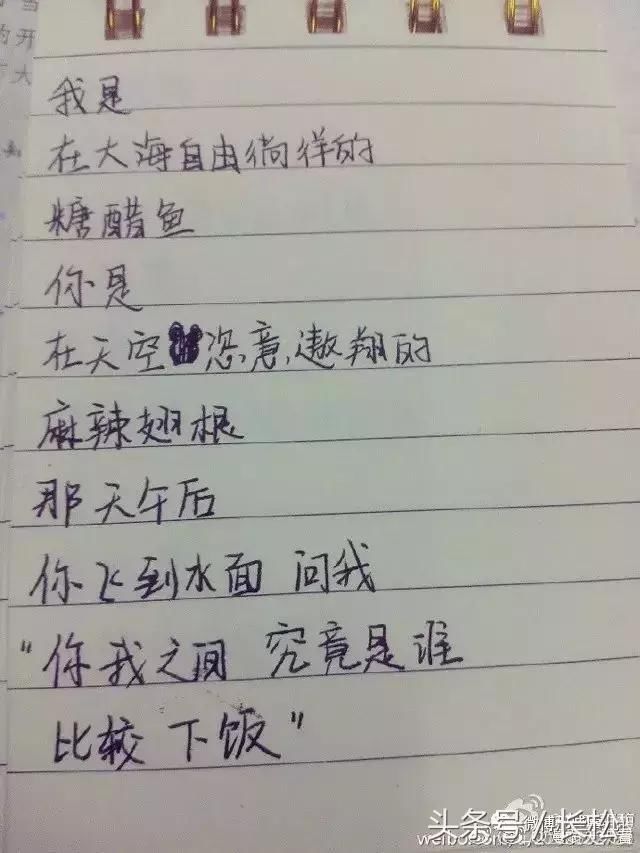 我是
在大海自由徜徉的
糖醋鱼
你是
在天空恣意遨翔的
麻辣翅根
那天午后
你飞到水面 问我
“你我之间 究竟是谁
比较 下饭”
头条号/长松